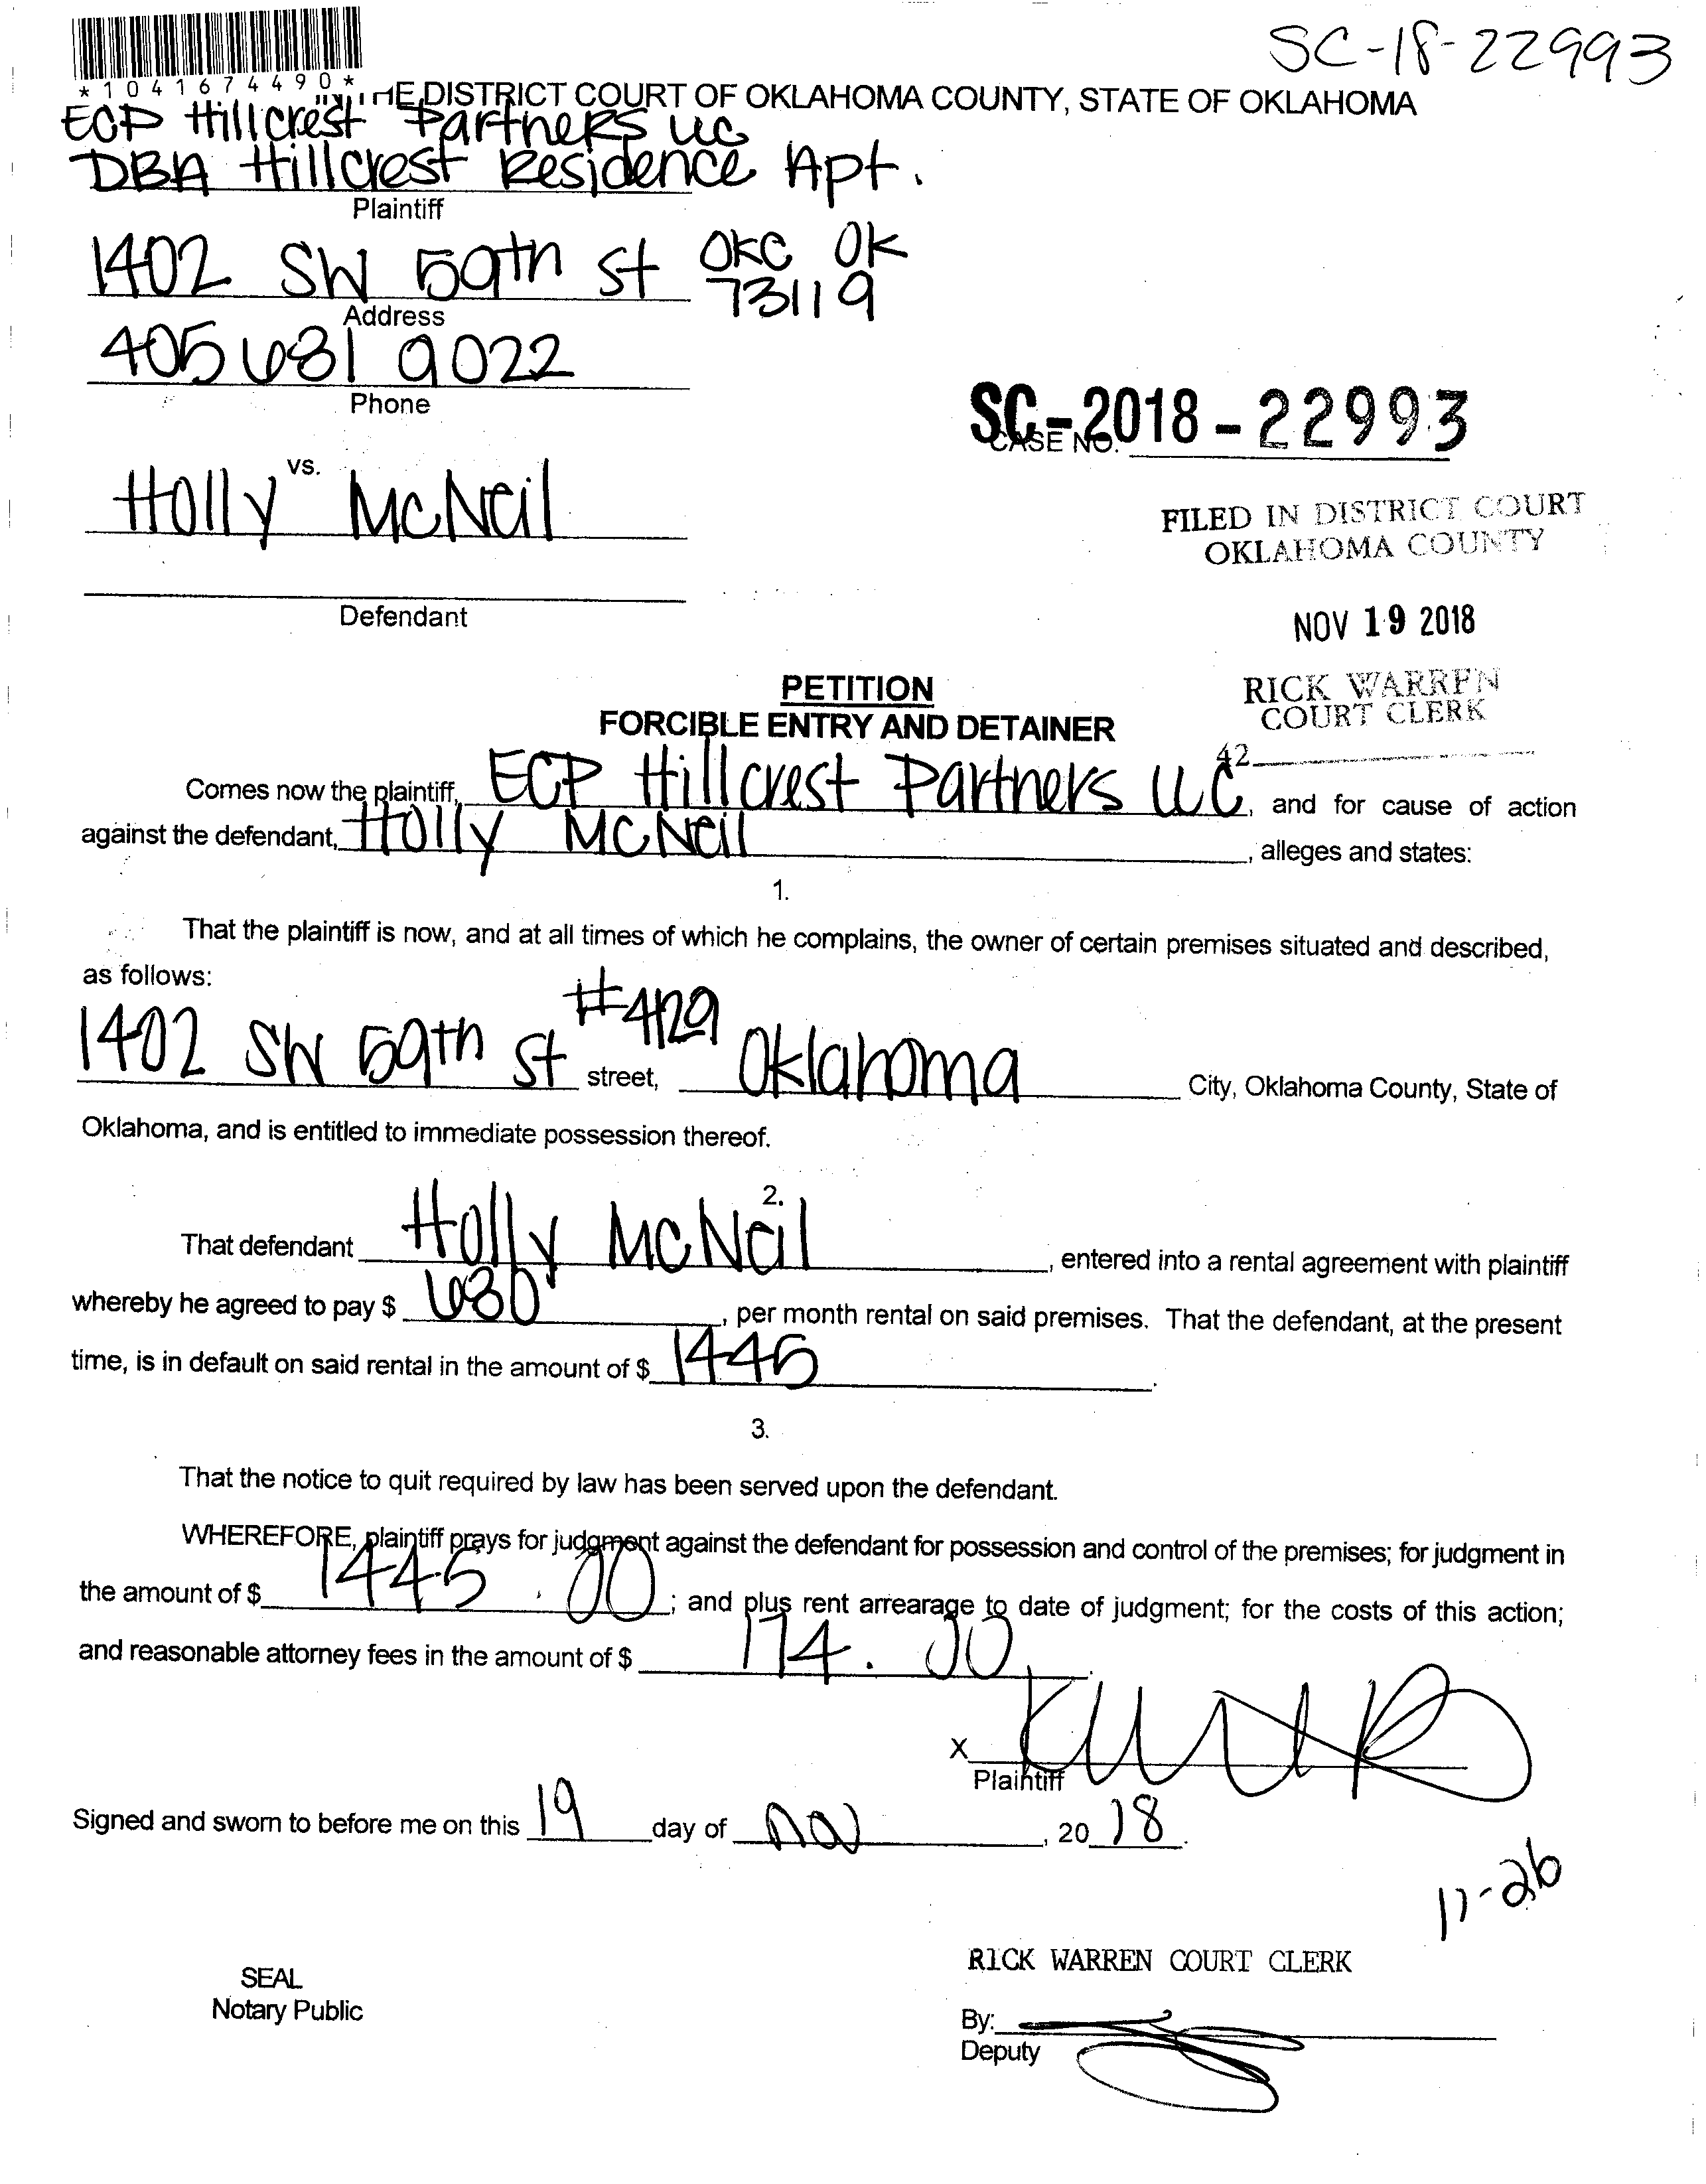 SC-18-22993
*1041674490*
THE DISTRICT COURT OF OKLAHOMA COUNTY, STATE OF OKLAHOMA
ECP Hillcrest Partners LLC
DBA Hillcrest Residence Apt.
Plaintiff
1402 SW 59th St OKC OK
73119
Address
405 681 9022
Phone
SC-2018-22993
CASE NO.
vs.
Holly McNeil
FILED IN DISTRICT COURT
OKLAHOMA COUNTY
Defendant
NOV 19 2018
PETITION
RICK WARREN
COURT CLERK
FORCIBLE ENTRY AND DETAINER
42
Comes now the plaintiff, ECP Hillcrest Partners LLC, and for cause of action
against the defendant, Holly McNeil, alleges and states:
1.
That the plaintiff is now, and at all times of which he complains, the owner of certain premises situated and described,
as follows:
1402 SW 59th St #429 street, Oklahoma City, Oklahoma County, State of
Oklahoma, and is entitled to immediate possession thereof.
2.
That defendant Holly McNeil, entered into a rental agreement with plaintiff
whereby he agreed to pay $ 680, per month rental on said premises. That the defendant, at the present
time, is in default on said rental in the amount of $ 1445.
3.
That the notice to quit required by law has been served upon the defendant.
WHEREFORE, plaintiff prays for judgment against the defendant for possession and control of the premises; for judgment in
the amount of $ 1445.00; and plus rent arrearage to date of judgment; for the costs of this action;
and reasonable attorney fees in the amount of $ 174.00.
X
Plaintiff
Signed and sworn to before me on this 19 day of nov, 20 18.
11-26
RICK WARREN COURT CLERK
SEAL
Notary Public
By:
Deputy